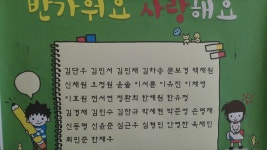 반가워요 사랑해요
김단우 김민서 김민채 김하웅 문보경 백재원
신채원 오정원 윤솔 이서륜 이유진 이채영
이호원 전서연 정환희 한예원 한유정
김경재 김민수 김찬규 박세현 박준영 은영재
신동영 신윤준 심근우 심형민 안정찬 육재민
최민준 한재우